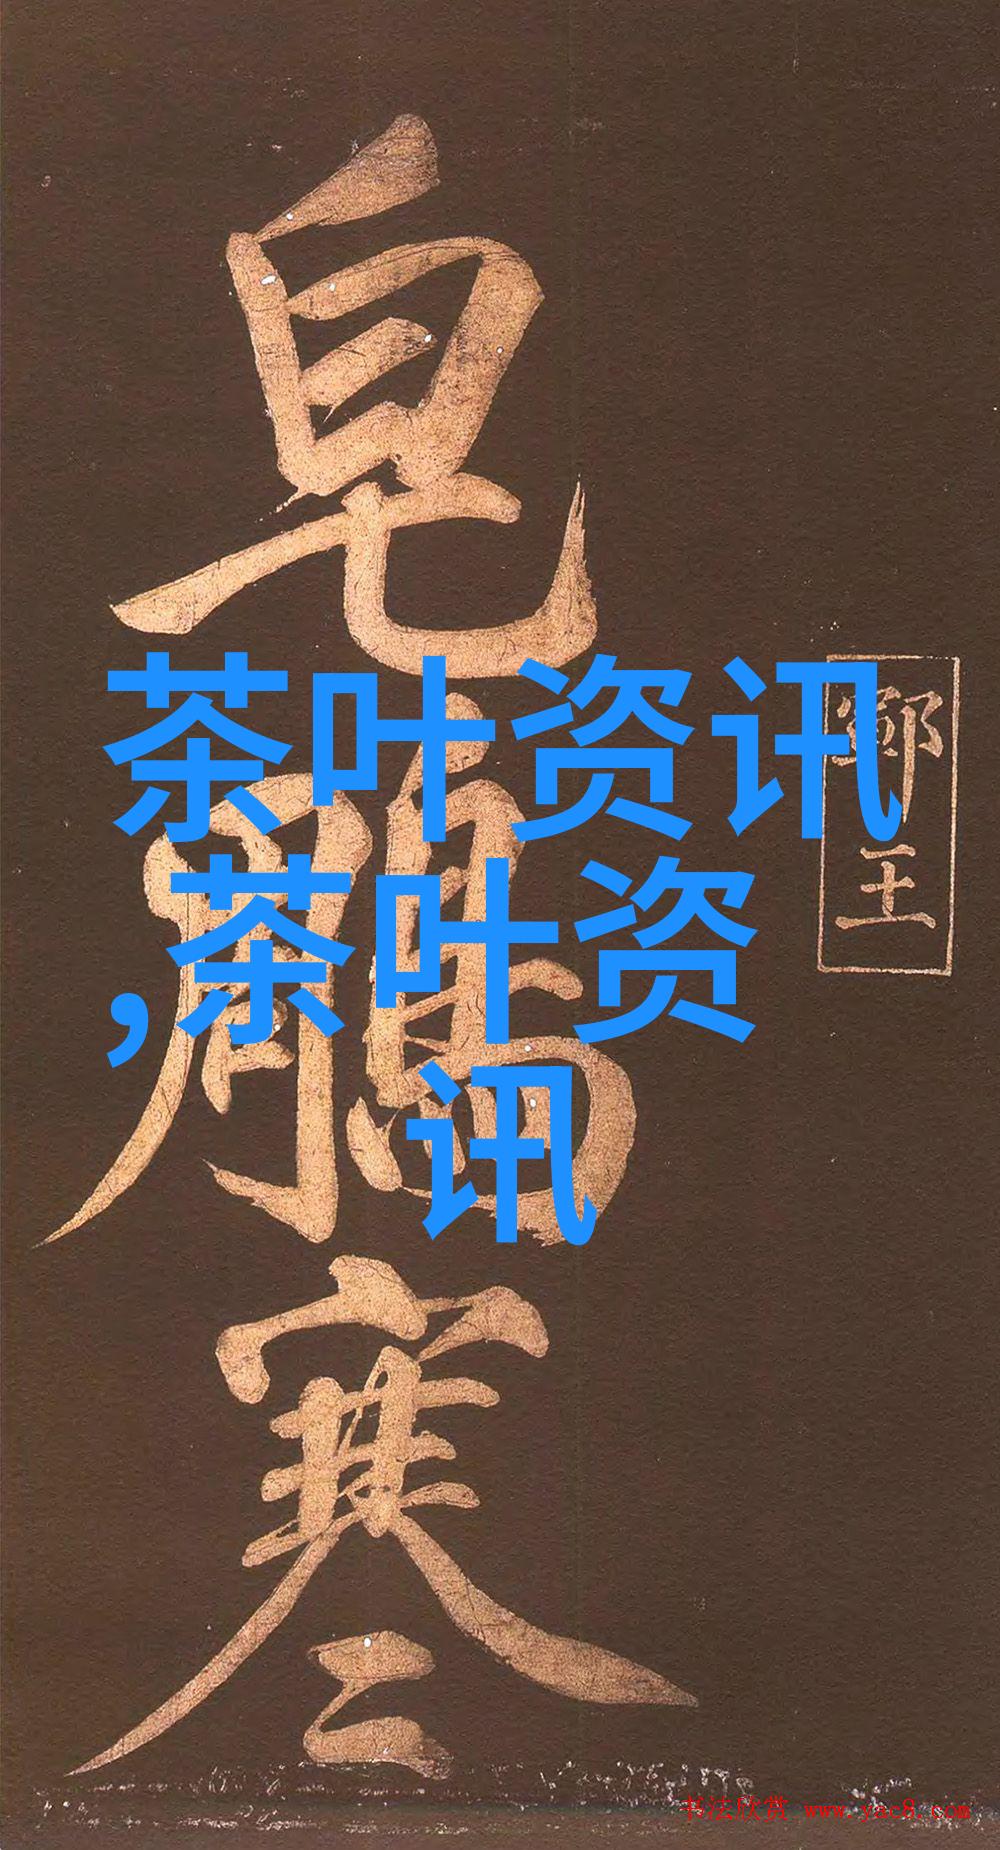 皂鵰寒
鄆王
茶叶资讯
,茶叶资
讯
书法欣赏 www.yac8.com